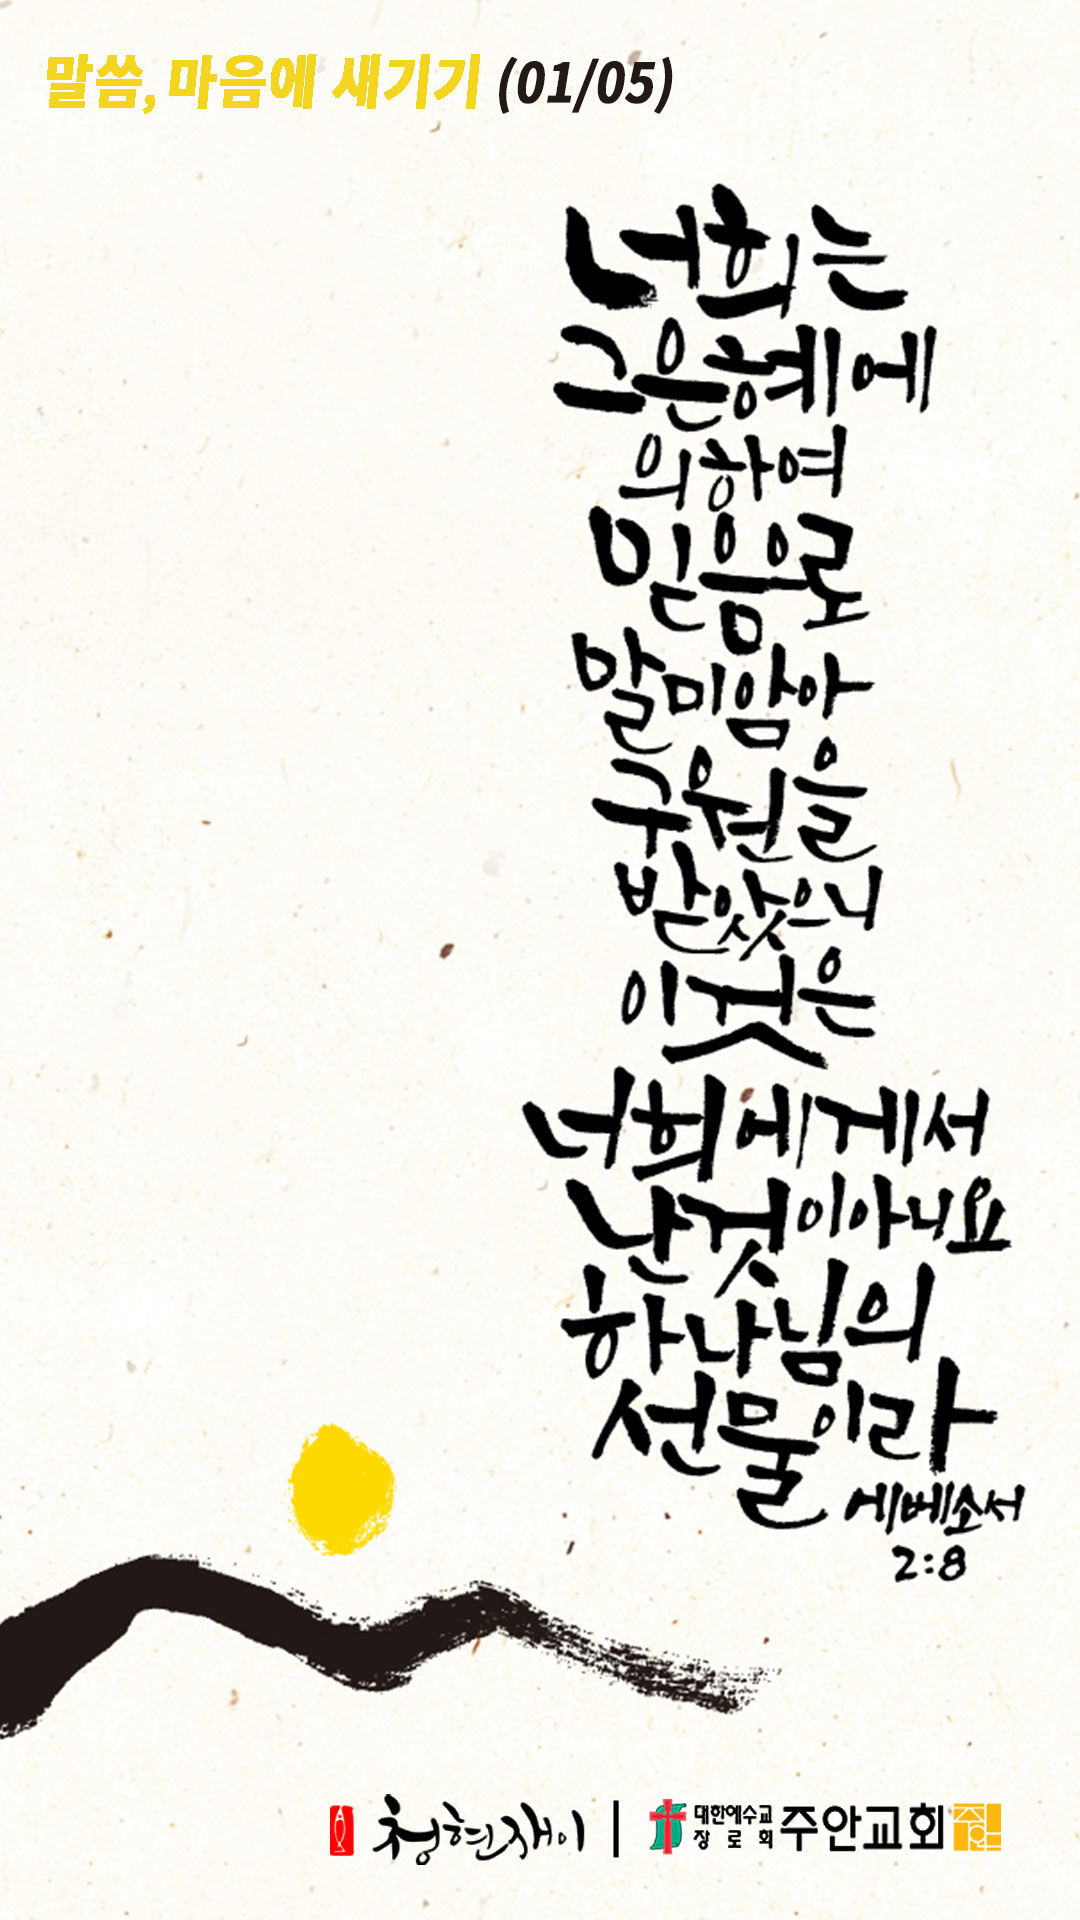 말씀, 마음에 새기기 (01/05)
너희는
그 은혜에
의하여
믿음으로
말미암아
구원을
받았으니
이것은
너희에게서
난 것이 아니요
하나님의
선물이라
에베소서
2:8
청현재이 | 대한예수교
장로회 주안교회